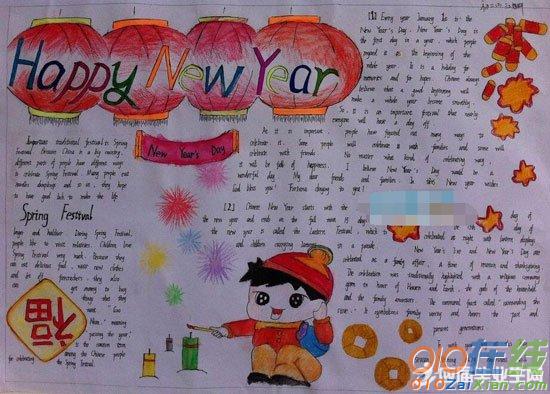 Happy New Year
New Year's Day
[1] Every year January 1s is the
New Year's Day. New Year's Day is
the first day in a year, which people
prepared it as the beginning of the
whole year. It is a holiday for
memories and for hopes. Chinese always
believe what a good beginning will
make a whole year become smoothly.
So, it is an important festival that nearly
everyone will have day off.
As it is important, people have figured out many ways to
celebrate it. Some people will celebrate it with families and some will
celebrate with friends. No matter what kind of celebrating way,
it will be full of happiness. I believe New Year's Day would be a
wonderful day. My dear friends families. In this New Year wishes
God bless you! Fortune to you!
Important traditional festival is Spring
Festival. Because China is a big country,
different parts of people have different ways
to celebrate Spring Festival. Many people eat
noodles dumplings and so on, they hope
to have good luck to make the life
Spring Festival
longer and healthier. During Spring Festival,
people like to visit relatives. Children love
Spring Festival very much. Because they
can eat delicious food, wear new clothes
and set off firecrackers. they also
can get money to buy
things that they
want
"passing the year,"
is the common term
among the Chinese people
for celebrating the Spring Festival.
福
[2] Chinese New Year starts with the
the new year and ends on the full moon 15 days day of
the new year is called the Lantern Festival, which celebrated at night with lantern displays
and children carrying lanterns in a parade. New Year's Eve and New Year's Day are
celebrated as a family affair, a time of reunion and thanksgiving.
The celebration was traditionally highlighted with a religious ceremony
given in honor of Heaven and Earth, the gods of the household
and the family ancestors.
The communal feast called "surrounding the
stove". It symbolizes family unity and honors the past and
present generations.
910在线
910ZaiXian.com